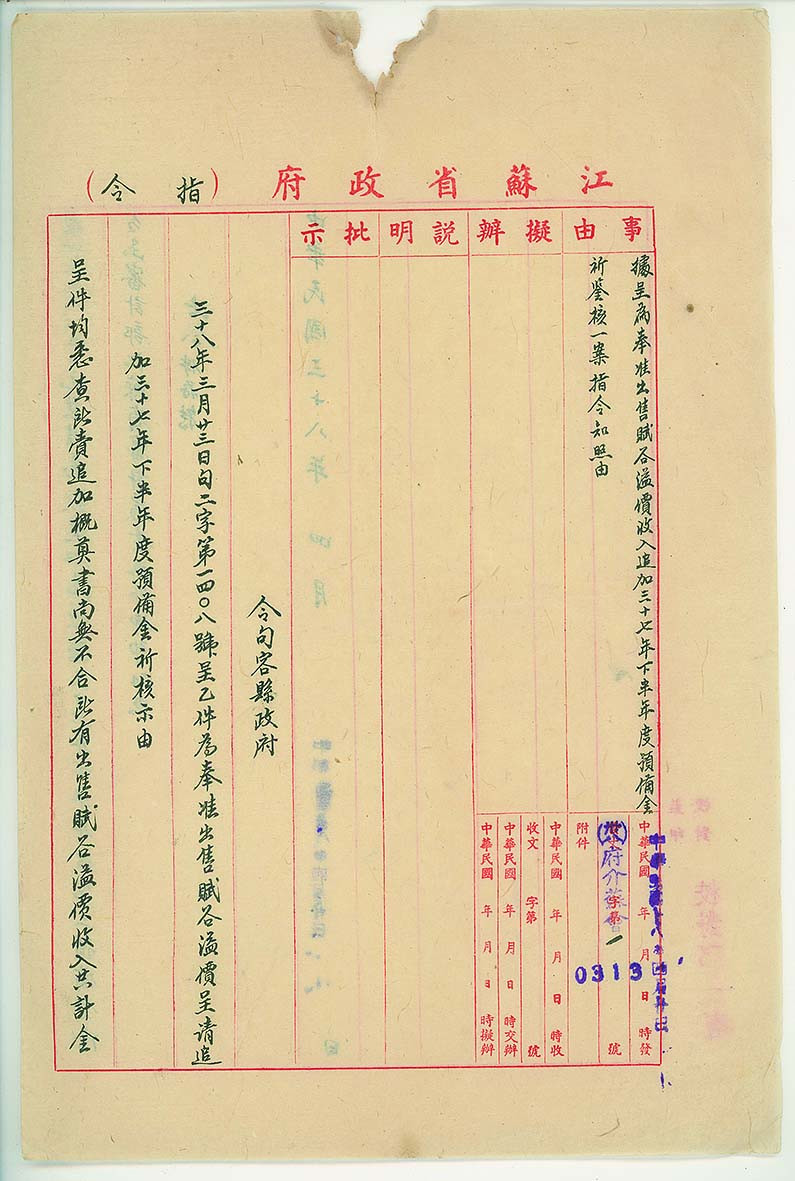 江蘇省政府(指令)
事由
擬辦
說明
批示
據呈為奉准出售賦谷溢價收入追加三十七年下半年度預備金
祈鑒核一案指令知照由
中華民國 年 月 日 時發
府介蘇會 字第 號
0313
附件
中華民國 年 月 日 時收
收文 字第 號
中華民國 年 月 日 時交辦
中華民國 年 月 日 時擬辦
令句容縣政府
三十八年三月廿三日句二字第一四〇八號呈乙件為奉准出售賦谷溢價呈請追
加三十七年下半年度預備金祈核示由
呈件均悉查所賫追加概算書尚無不合所有出售賦谷溢價收入共計金